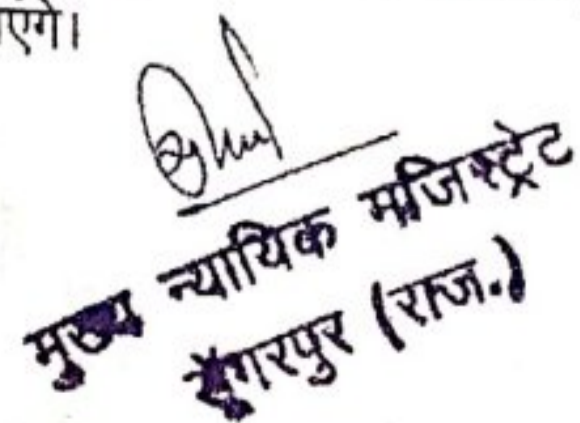 एंगे।
मुख्य न्यायिक मजिस्ट्रेट
डूंगरपुर (राज.)